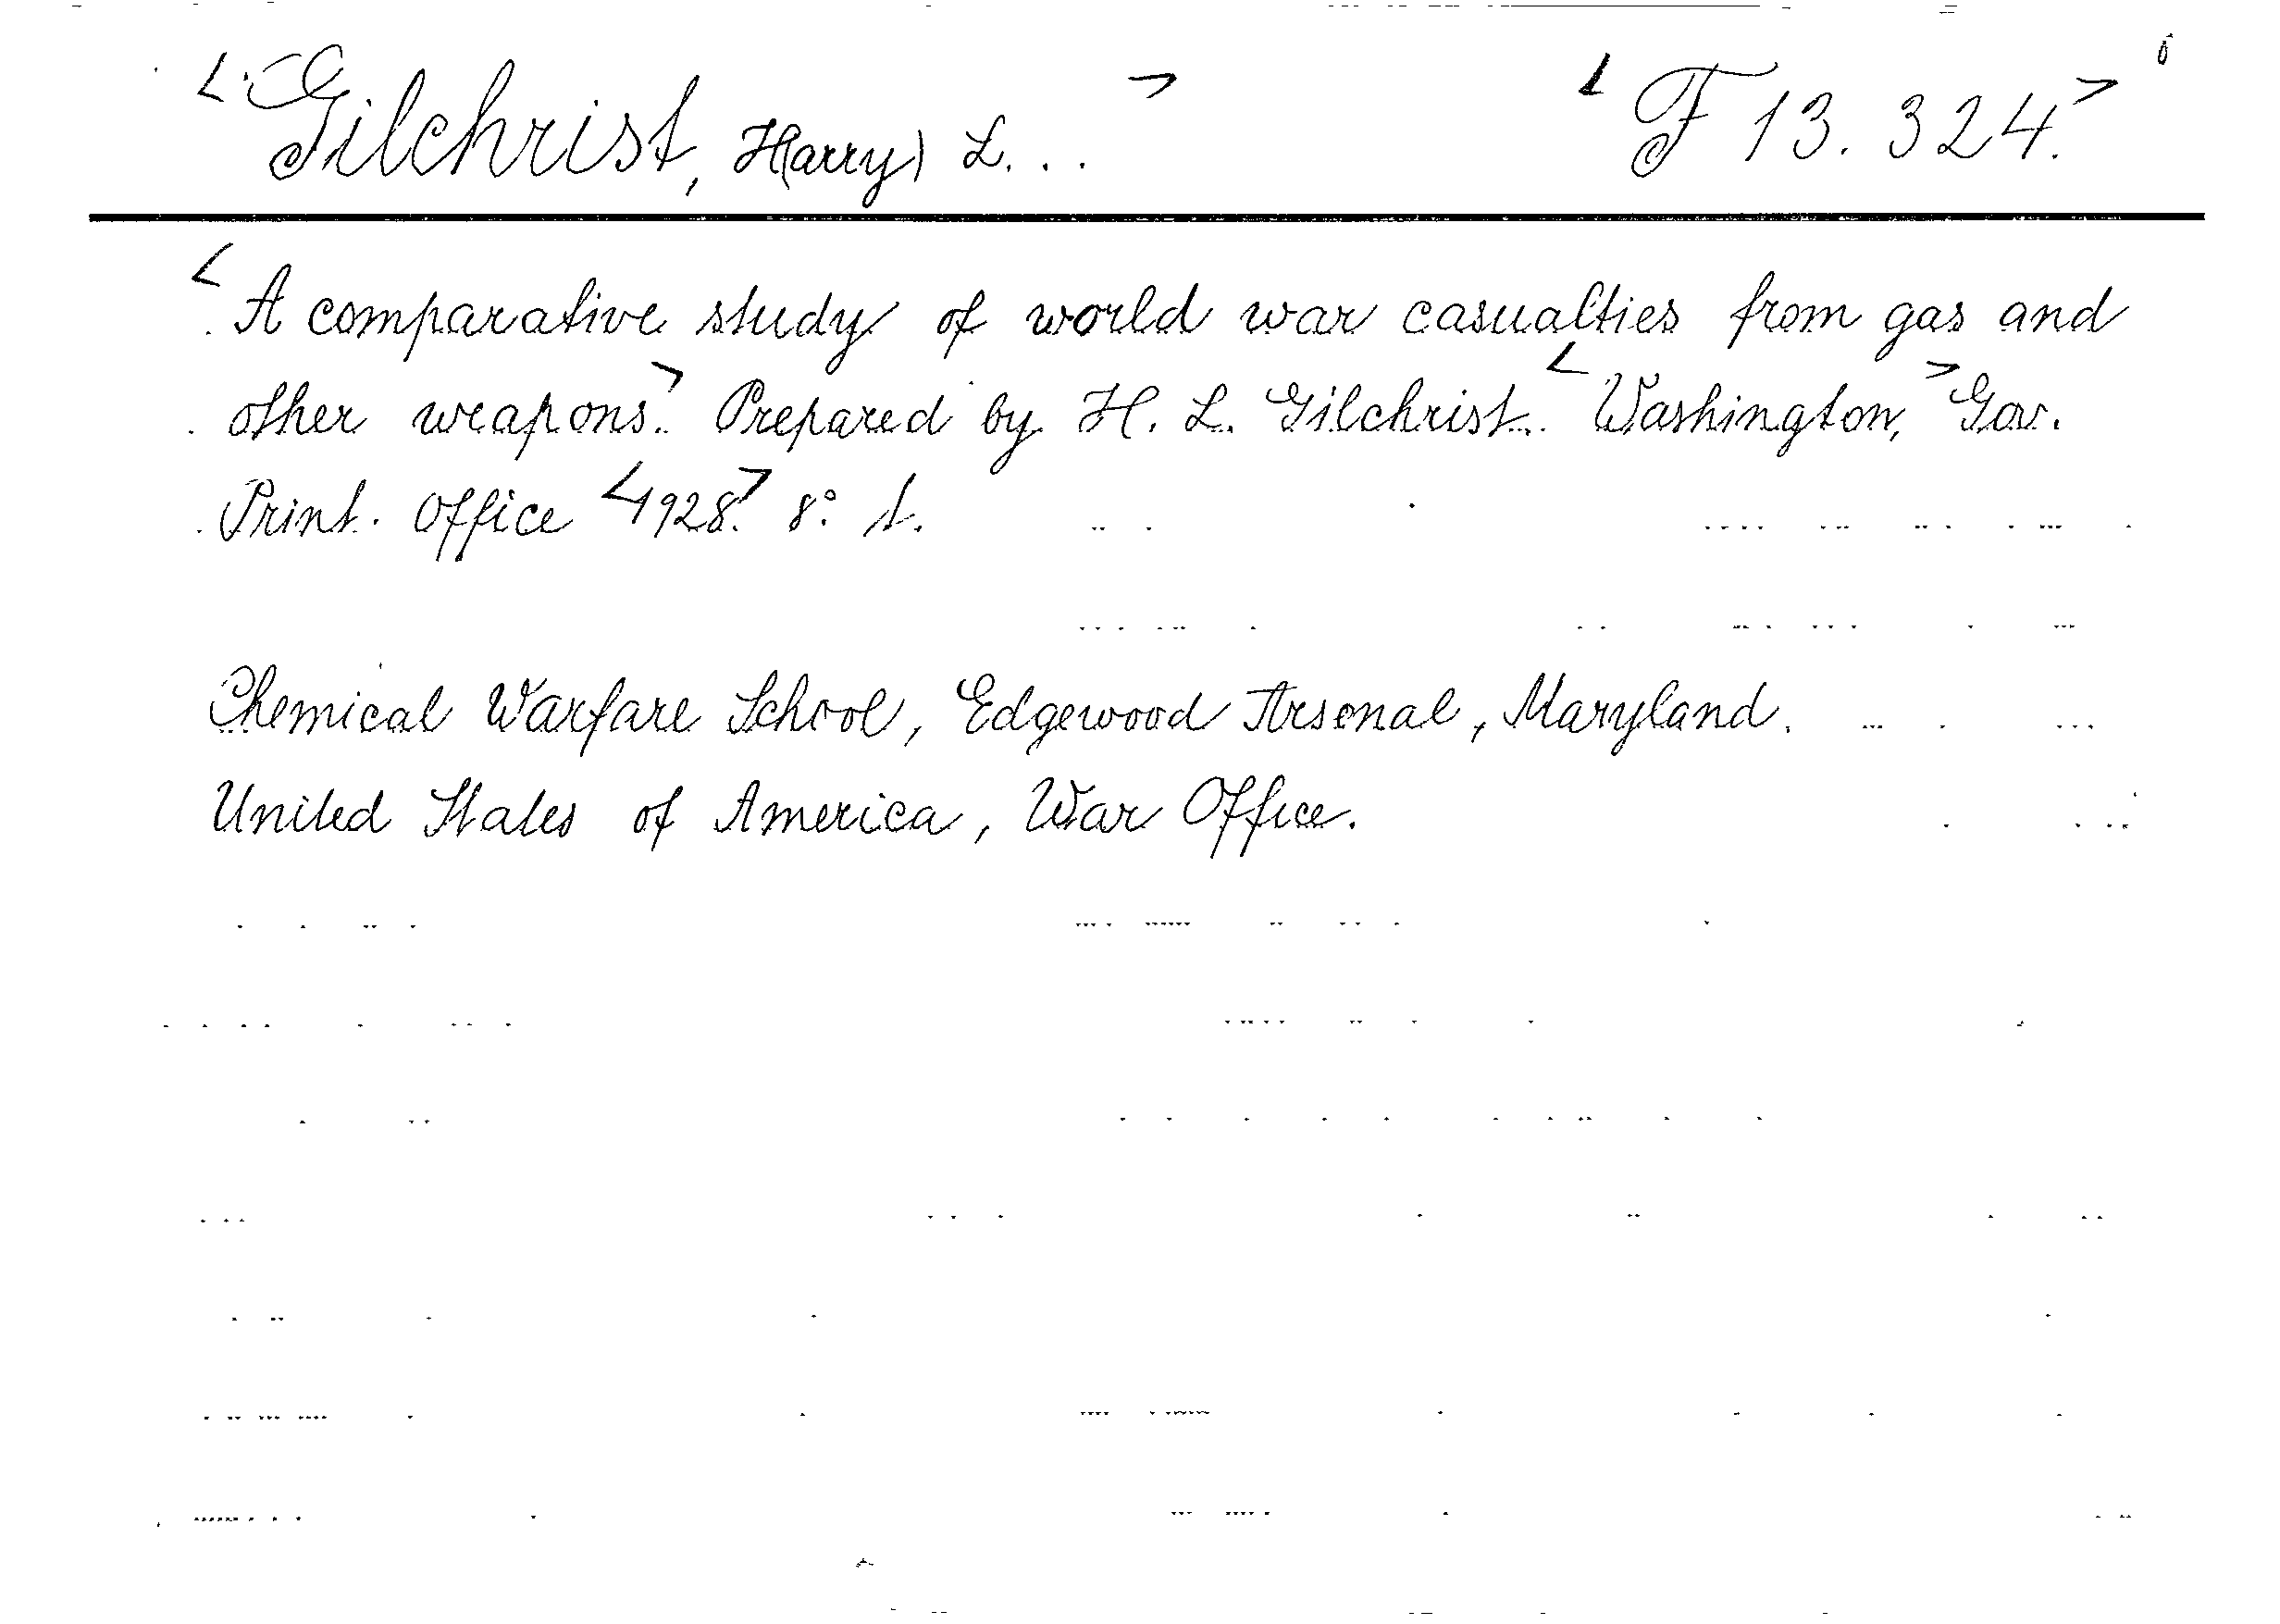 <Gilchrist, H(arry) L. . .> <F 13. 324.>
<A comparative study of world war casualties from gas and
other weapons.> Prepared by H. L. Gilchrist. <Washington,> Gov.
Print. Office <1928.> 8° 1.
Chemical Warfare School, Edgewood Arsenal, Maryland.
United States of America, War Office.